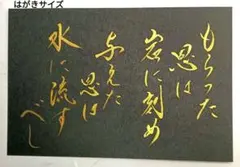 はがきサイズ
もらった
恩は
岩に刻め
与えた
恩は
水に流す
べし